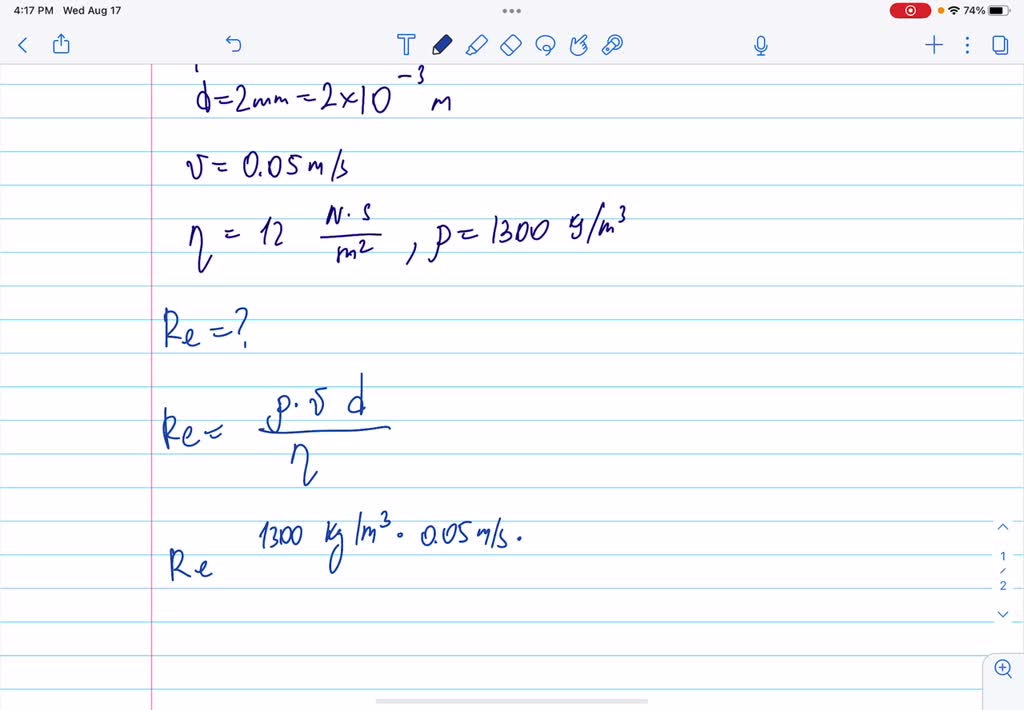 4:17 PM Wed Aug 17
74%
d=2mm=2×10⁻³ m
v= 0.05 m/s
η = 12 N·s/m² , ρ= 1300 kg/m³
Re=?
Re= ρ·v d/η
1300 kg/m³ · 0.05 m/s ·
Re
1
/
2